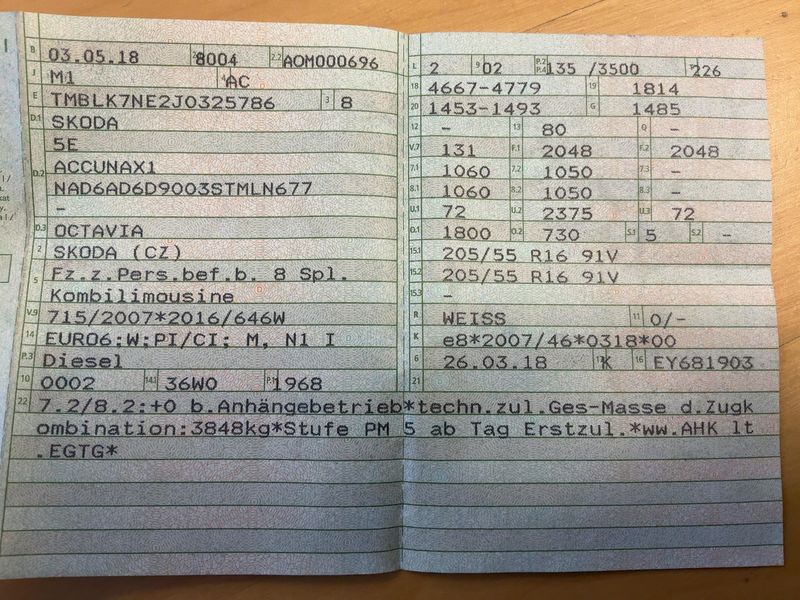 B 03.05.18 2.1 8004 2.2 AOM000696
J M1 4 AC
E TMBLK7NE2J0325786 3 8
D.1 SKODA
5E
D.2 ACCUNAX1
NAD6AD6D9003STMLN677
-
D.3 OCTAVIA
2 SKODA (CZ)
5 Fz.z.Pers.bef.b. 8 Spl.
Kombilimousine
V.9 715/2007*2016/646W
14 EURO6;W;PI/CI; M, N1 I
P.3 Diesel
10 0002 14.1 36W0 P.1 1968
L 2 9 02 P.2 P.4 135 /3500 T 226
18 4667-4779 19 1814
20 1453-1493 G 1485
12 - 13 80 Q -
V.7 131 F.1 2048 F.2 2048
7.1 1060 7.2 1050 7.3 -
8.1 1060 8.2 1050 8.3 -
U.1 72 U.2 2375 U.3 72
O.1 1800 O.2 730 S.1 5 S.2 -
15.1 205/55 R16 91V
15.2 205/55 R16 91V
15.3 -
R WEISS 11 0/-
K e8*2007/46*0318*00
6 26.03.18 17 K 16 EY681903
21
22 7.2/8.2:+0 b.Anhängebetrieb*techn.zul.Ges-Masse d.Zugk
ombination:3848kg*Stufe PM 5 ab Tag Erstzul.*ww.AHK lt
.EGTG*